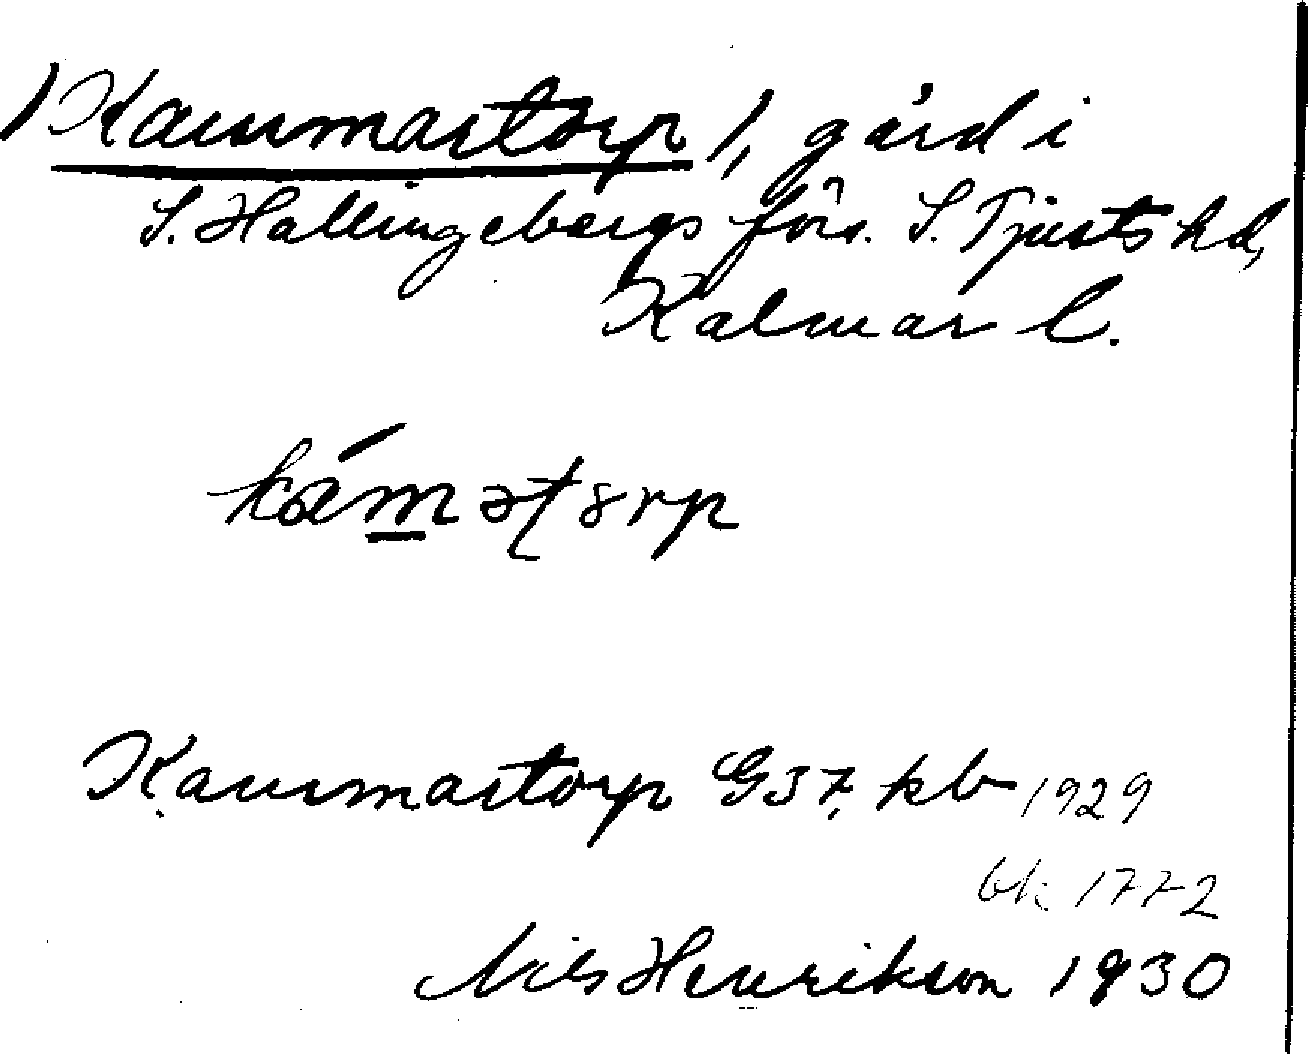 /Kausmastorp/, gård i
S. Hallingebergs förs. S. Tjusts hd,
Kalmar l.
Kausmastorp G37, kb 1929
bk 1772
Nils Henrikson 1930